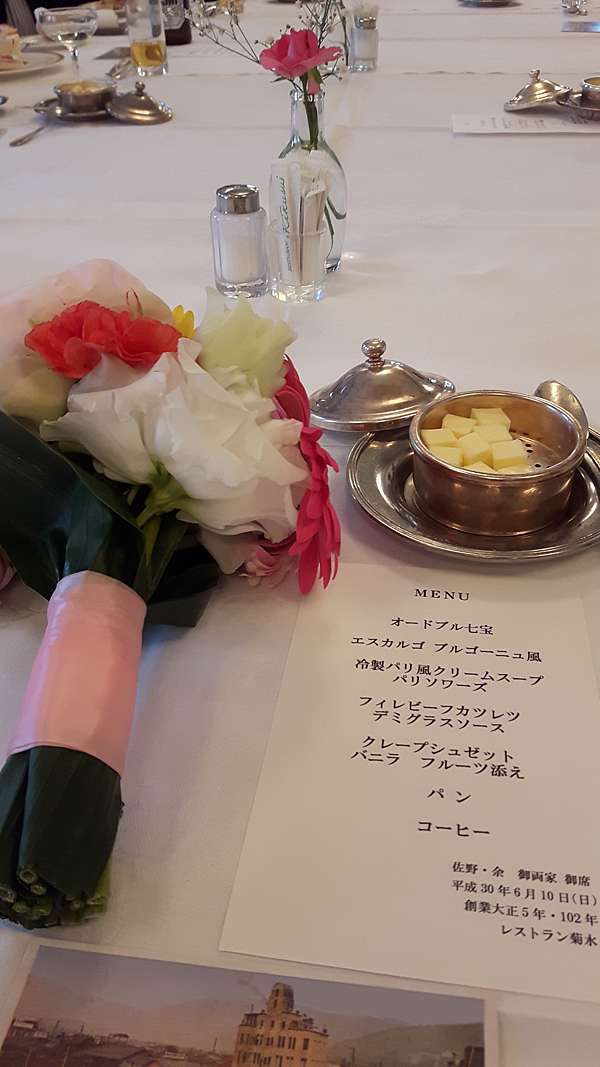 MENU
オードブル七宝
エスカルゴ ブルゴーニュ風
冷製パリ風クリームスープ
パリソワーズ
フィレビーフカツレツ
デミグラスソース
クレープシュゼット
バニラ　フルーツ添え
パン
コーヒー
佐野・余　御両家 御席
平成30年6月10日(日)
創業大正5年・102年
レストラン菊水